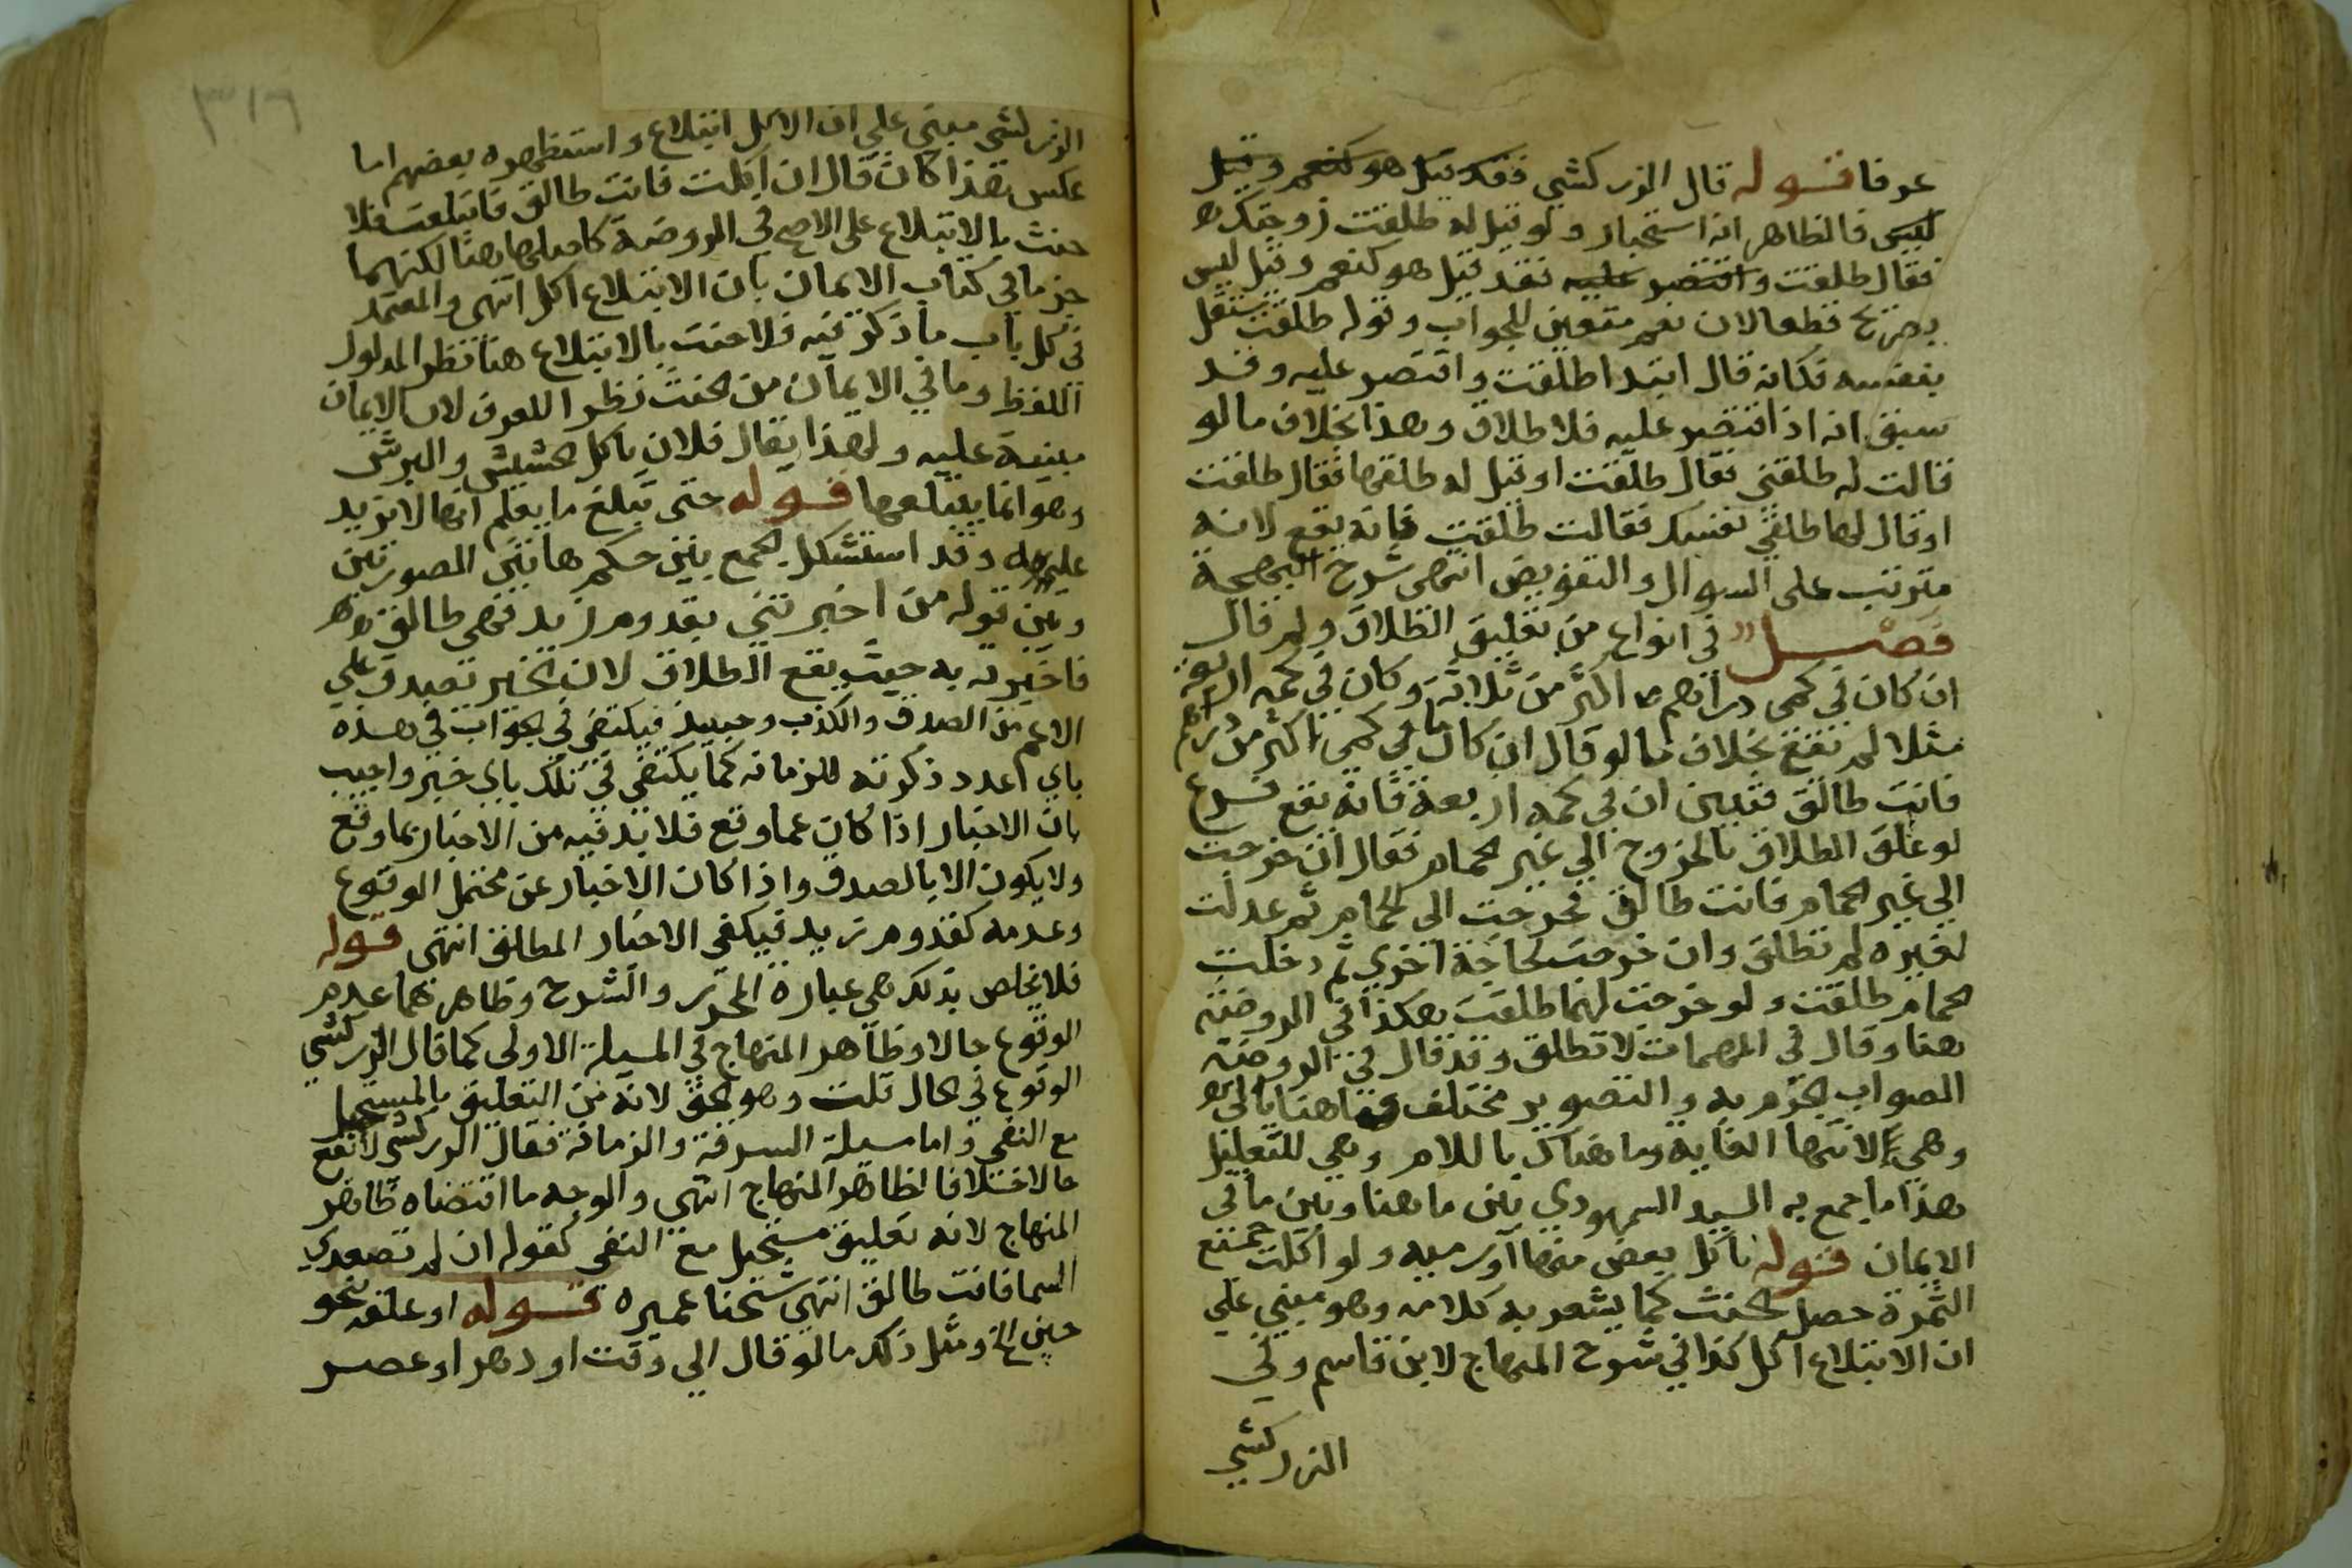 عرفا قوله قال الزركشي فقد قيل هو كنعم وقيل
ليس فالظاهر انه استخبار ولو قيل له طلقت زوجتك
فقال طلقت واقتصر عليه فقد قيل هو كنعم وقيل ليس
بصريح قطعا لان نعم متعين للجواب وقوله طلقت مستقل
بنفسه فكانه قال ابتدا طلقت واقتصر عليه وقد
سبق انه اذا اقتصر عليه فلا طلاق وهذا بخلاف ما لو
قالت له طلقني فقال طلقت او قيل له طلقها فقال طلقت
او قال لها طلقي نفسك فقالت طلقت فانه يقع لانه
مترتب على السوال والتفويض انتهى شرح البهجة
فصل في انواع من تعليق الطلاق ولو قال
ان كان في كمي دراهم اكثر من ثلاثة وكان في كمه اربعة
مثلا لم تقع بخلاف ما لو قال ان كان ما في كمي اكثر من دراهم
فانت طالق فتبين ان في كمه اربعة فانه يقع فرع
لو علق الطلاق بالخروج الي غير الحمام فقال ان خرجت
الي غير الحمام فانت طالق فخرجت الى الحمام ثم عدلت
لغيره لم تطلق وان خرجت لحاجة اخري ثم دخلت
الحمام طلقت ولو خرجت لهما طلقت هكذا في الروضة
هنا وقال في المهمات لا تطلق وقد قال في الروضة
الصواب الجزم به والتصوير مختلف فما هنا بالى
وهي لانتها الغاية وما هناك باللام وهي للتعليل
هذا ما جمع به السيد السمهودي بين ما هنا وبين ما في
الايمان قوله باكل بعض منها او رميه ولو اكلت جميع
الثمرة حصل الحنث كما يشعر به كلامه وهو مبني علي
ان الابتلاع اكل كذا في شرح المنهاج لابن قاسم وفي
الزركشي
٣١٦
الزركشي مبني علي ان الاكل ابتلاع واستظهره بعضهم اما
عكس هذا كان قال ان اكلت فانت طالق فابتلعت فلا
حنث بالابتلاع على الاصح في الروضة كاصلها هنا لكنهما
جزما في كتاب الايمان بان الابتلاع اكل انتهى والمعتمد
في كل باب ما ذكر فيه فلا حنث بالابتلاع هنا نظر المدلول
اللفظ وما في الايمان من الحنث نظرا للعرف لان الايمان
مبنية عليه ولهذا يقال فلان ياكل الحشيش والبرش
وهو انما يبتلعها قوله حتى تبلغ ما يعلم انها لا تزيد
عليه وقد استشكل الجمع بين حكم هاتين الصورتين
وبين قوله من اخبرتني بقدوم زيد فهي طالق
فاخبرته به حيث يقع الطلاق لان الخبر تصدق علي
الاعم من الصدق والكذب وحينئذ فيكتفي في الجواب في هذه
باي عدد ذكرته للرمانه كما يكتفي في تلك باي خبر واجيب
بان الاخبار اذا كان عما وقع فلا بد فيه من الاخبار بما وقع
ولا يكون الا بالصدق واذا كان الاخبار عن محتمل الوقوع
وعدمه كقدوم زيد فيكفي الاخبار المطلق انتهى قوله
فلا يخلص بذلك هي عبارة المحرر والشرح وظاهرهما عدم
الوقوع حالا وظاهر المنهاج في المسيلة الاولى كما قال الزركشي
الوقوع في الحال قلت وهو الحق لانه من التعليق بالمستحيل
مع النفي واما مسيلة السرقة والرمانة فقال الزركشي لا تقع
حالا خلافا لظاهر المنهاج انتهى والوجه ما اقتضاه ظاهر
المنهاج لانه تعليق مستحيل مع النفي كقوله ان لم تصعدي
السما فانت طالق انتهى شيخنا عميره قوله او علق بنحو
حين الخ ومثل ذلك ما لو قال الي وقت او دهر او عصر